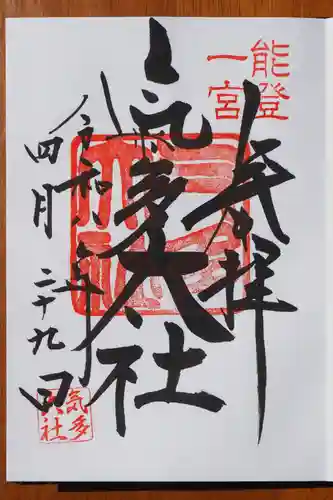 能登
一宮
奉拝
氣多大社
令和六年
四月二十九日
気多
大社